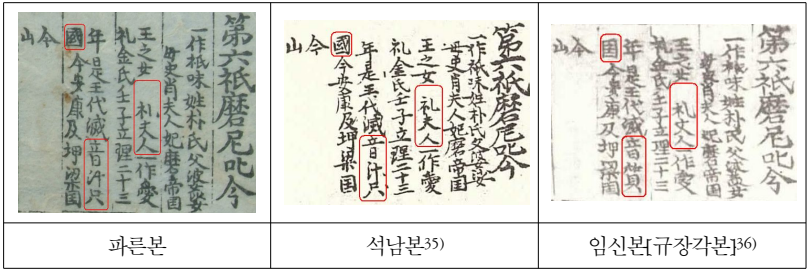 第六祇磨尼叱今
一作祇味姓朴氏父婆娑
母史肖夫人妃磨帝囯
王之女礼夫人一作愛
礼金氏壬子立理二十三
年是王代滅音汁只
國今安康及押梁囯
今
山
파른본
第六祇磨尼叱今
一作祇味姓朴氏父婆娑
母史肖夫人妃磨帝囯
王之女礼夫人一作愛
礼金氏壬子立理二十三
年是王代滅音汁只
國今安康及押梁囯
今
山
석남본35)
第六祇磨尼叱今
一作祇味姓朴氏父婆娑
母史肖夫人妃磨帝囯
王之女礼夫人一作愛
礼金氏壬子立理二十三
年是王代滅音質
囯今安康及押梁囯
今
山
임신본[규장각본]36)